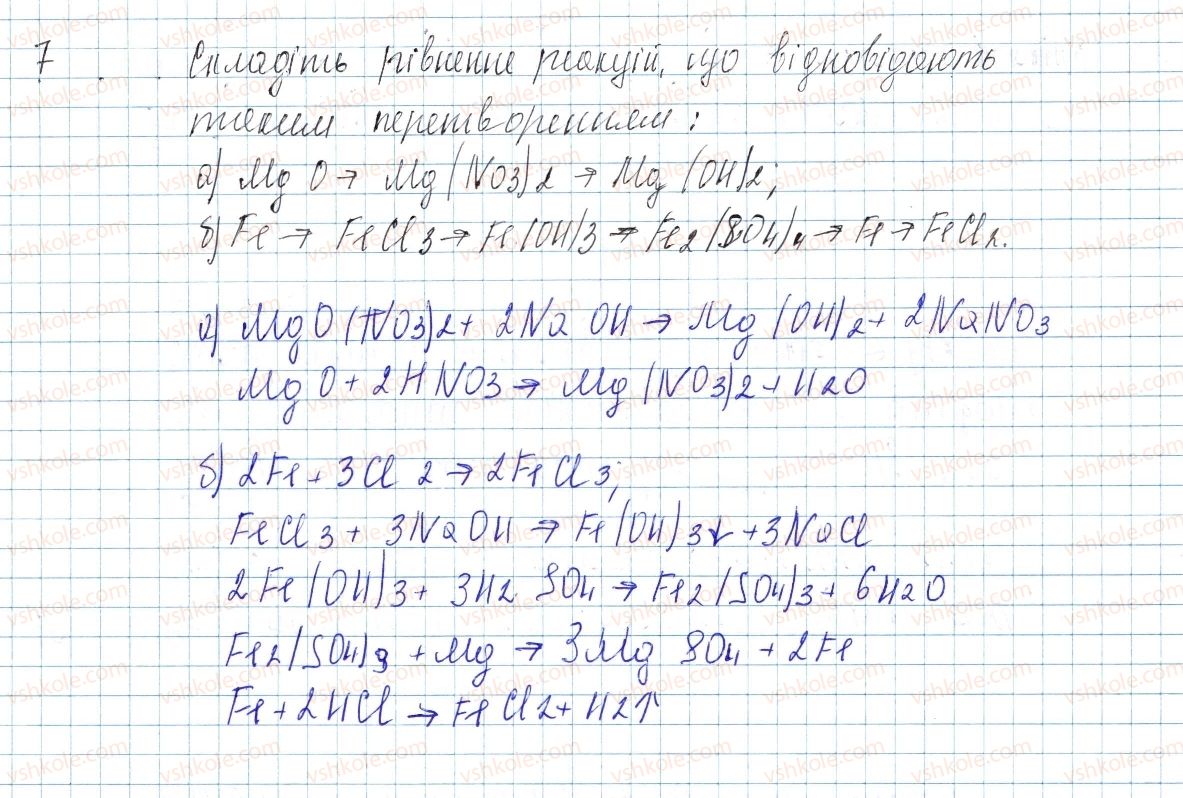 7 Складіть рівняння реакцій, що відповідають
таким перетворенням:
а) MgO → Mg(NO3)2 → Mg(OH)2;
б) Fe → FeCl3 → Fe(OH)3 → Fe2(SO4)4 → Fe → FeCl2.
а) MgO(NO3)2 + 2NaOH → Mg(OH)2 + 2NaNO3
MgO + 2HNO3 → Mg(NO3)2 + H2O
б) 2Fe + 3Cl2 → 2FeCl3;
FeCl3 + 3NaOH → Fe(OH)3↓ + 3NaCl
2Fe(OH)3 + 3H2SO4 → Fe2(SO4)3 + 6H2O
Fe2(SO4)3 + Mg → 3MgSO4 + 2Fe
Fe + 2HCl → FeCl2 + H2↑